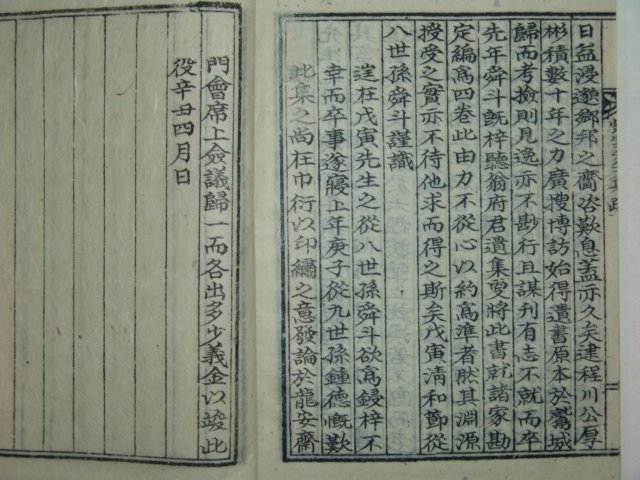 日益浸遠鄉邦之齎咨歎息盖亦久矣逮程川公厚
彬積數十年之力廣搜博訪始得遺書原本於鷲城
歸而考檢則見逸亦不尠行且謀刊有志不就而卒
先年舜斗旣梓聽翁府君遺集更將此書就諸家勘
定編爲四卷此由力不從心以約爲準者然其淵源
授受之實亦不待他求而得之斯矣戊寅清和節從
八世孫舜斗謹識
徃在戊寅先生之從八世孫舜斗欲爲鋟梓不
幸而卒事遂寢上年庚子從九世孫鍾德慨歎
此集之尚在巾衍以印繡之意發論於龍安齋
門會席上僉議歸一而各出多少義金以竣此
役辛丑四月日